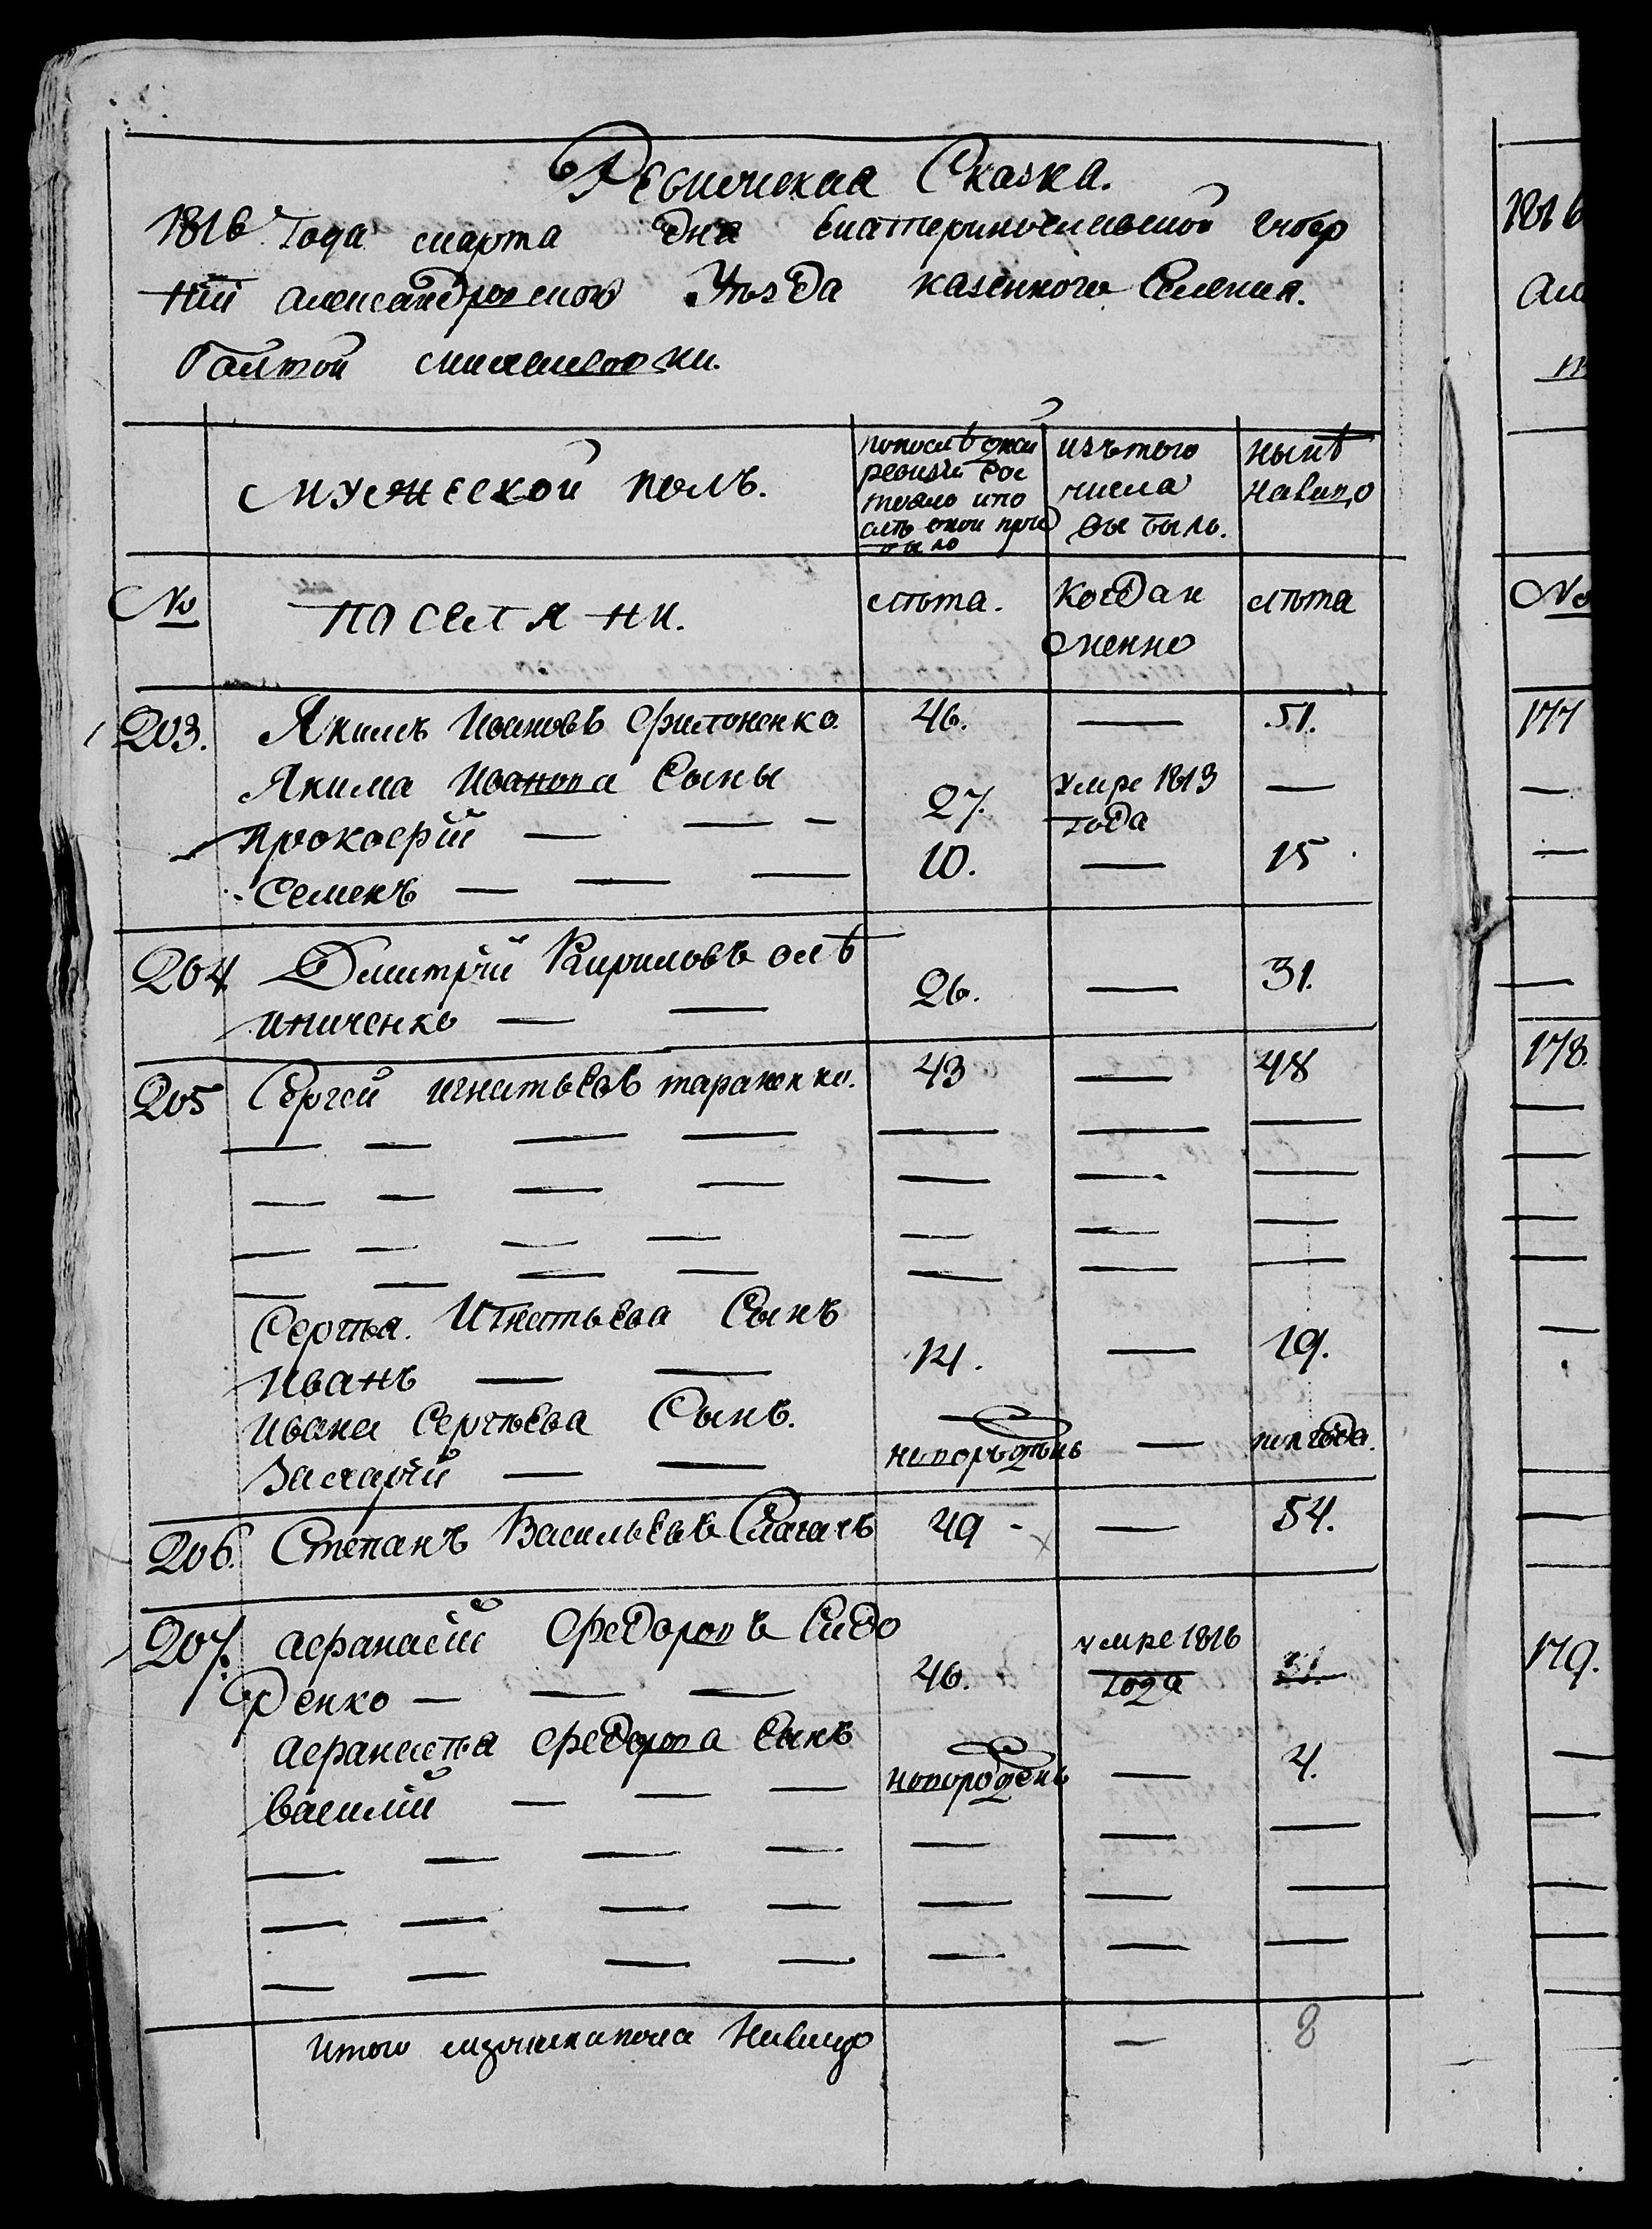 Ревижская Сказка.
1816 Года марта дня Екатеринославской губер
ній Александровскої Уѣзда казенного Селения.
балтой михайловки.
мужеской полъ.
попослѣдней ревизіи состояло ипослѣ оной прибыло
изътого числа выбыло.
нынѣ налицо
№ поселяни. лѣта. Когда имянно лѣта
203. Якимъ Ивановъ Филоненко. 46. — 51.
Якима Иванова Сыны
Прокофій — — — 27. умре 1813 года —
Семенъ — — — 10. — 15
204 Дмитрій Кириловъ олѣ
иниченко — — 26. — 31.
205 Сергей игнатьевъ тараненко. 43 — 48
— — — — — — —
— — — — — — —
— — — — — — —
— — — — — — —
Сергѣя Игнатьева Сынъ
Иванъ — — 14. — 19.
Ивана Сергѣева Сынъ.
Захарій — — непорожденъ — пол года.
206. Степанъ Васильевъ Слагачъ 49 - — 54.
207. афанасій Федоровъ Сидо
ренко — — — 46. умре 1816 года 51.
афанасѣя Федорова Сынъ
василій — — — непорожденъ — 4.
— — — — — — —
— — — — — — —
— — — — — — —
Итого мужеска пола Налицо — 8
1816
Але
№
177
—
—
—
178.
—
—
—
—
—
—
179.
—
—
—
—